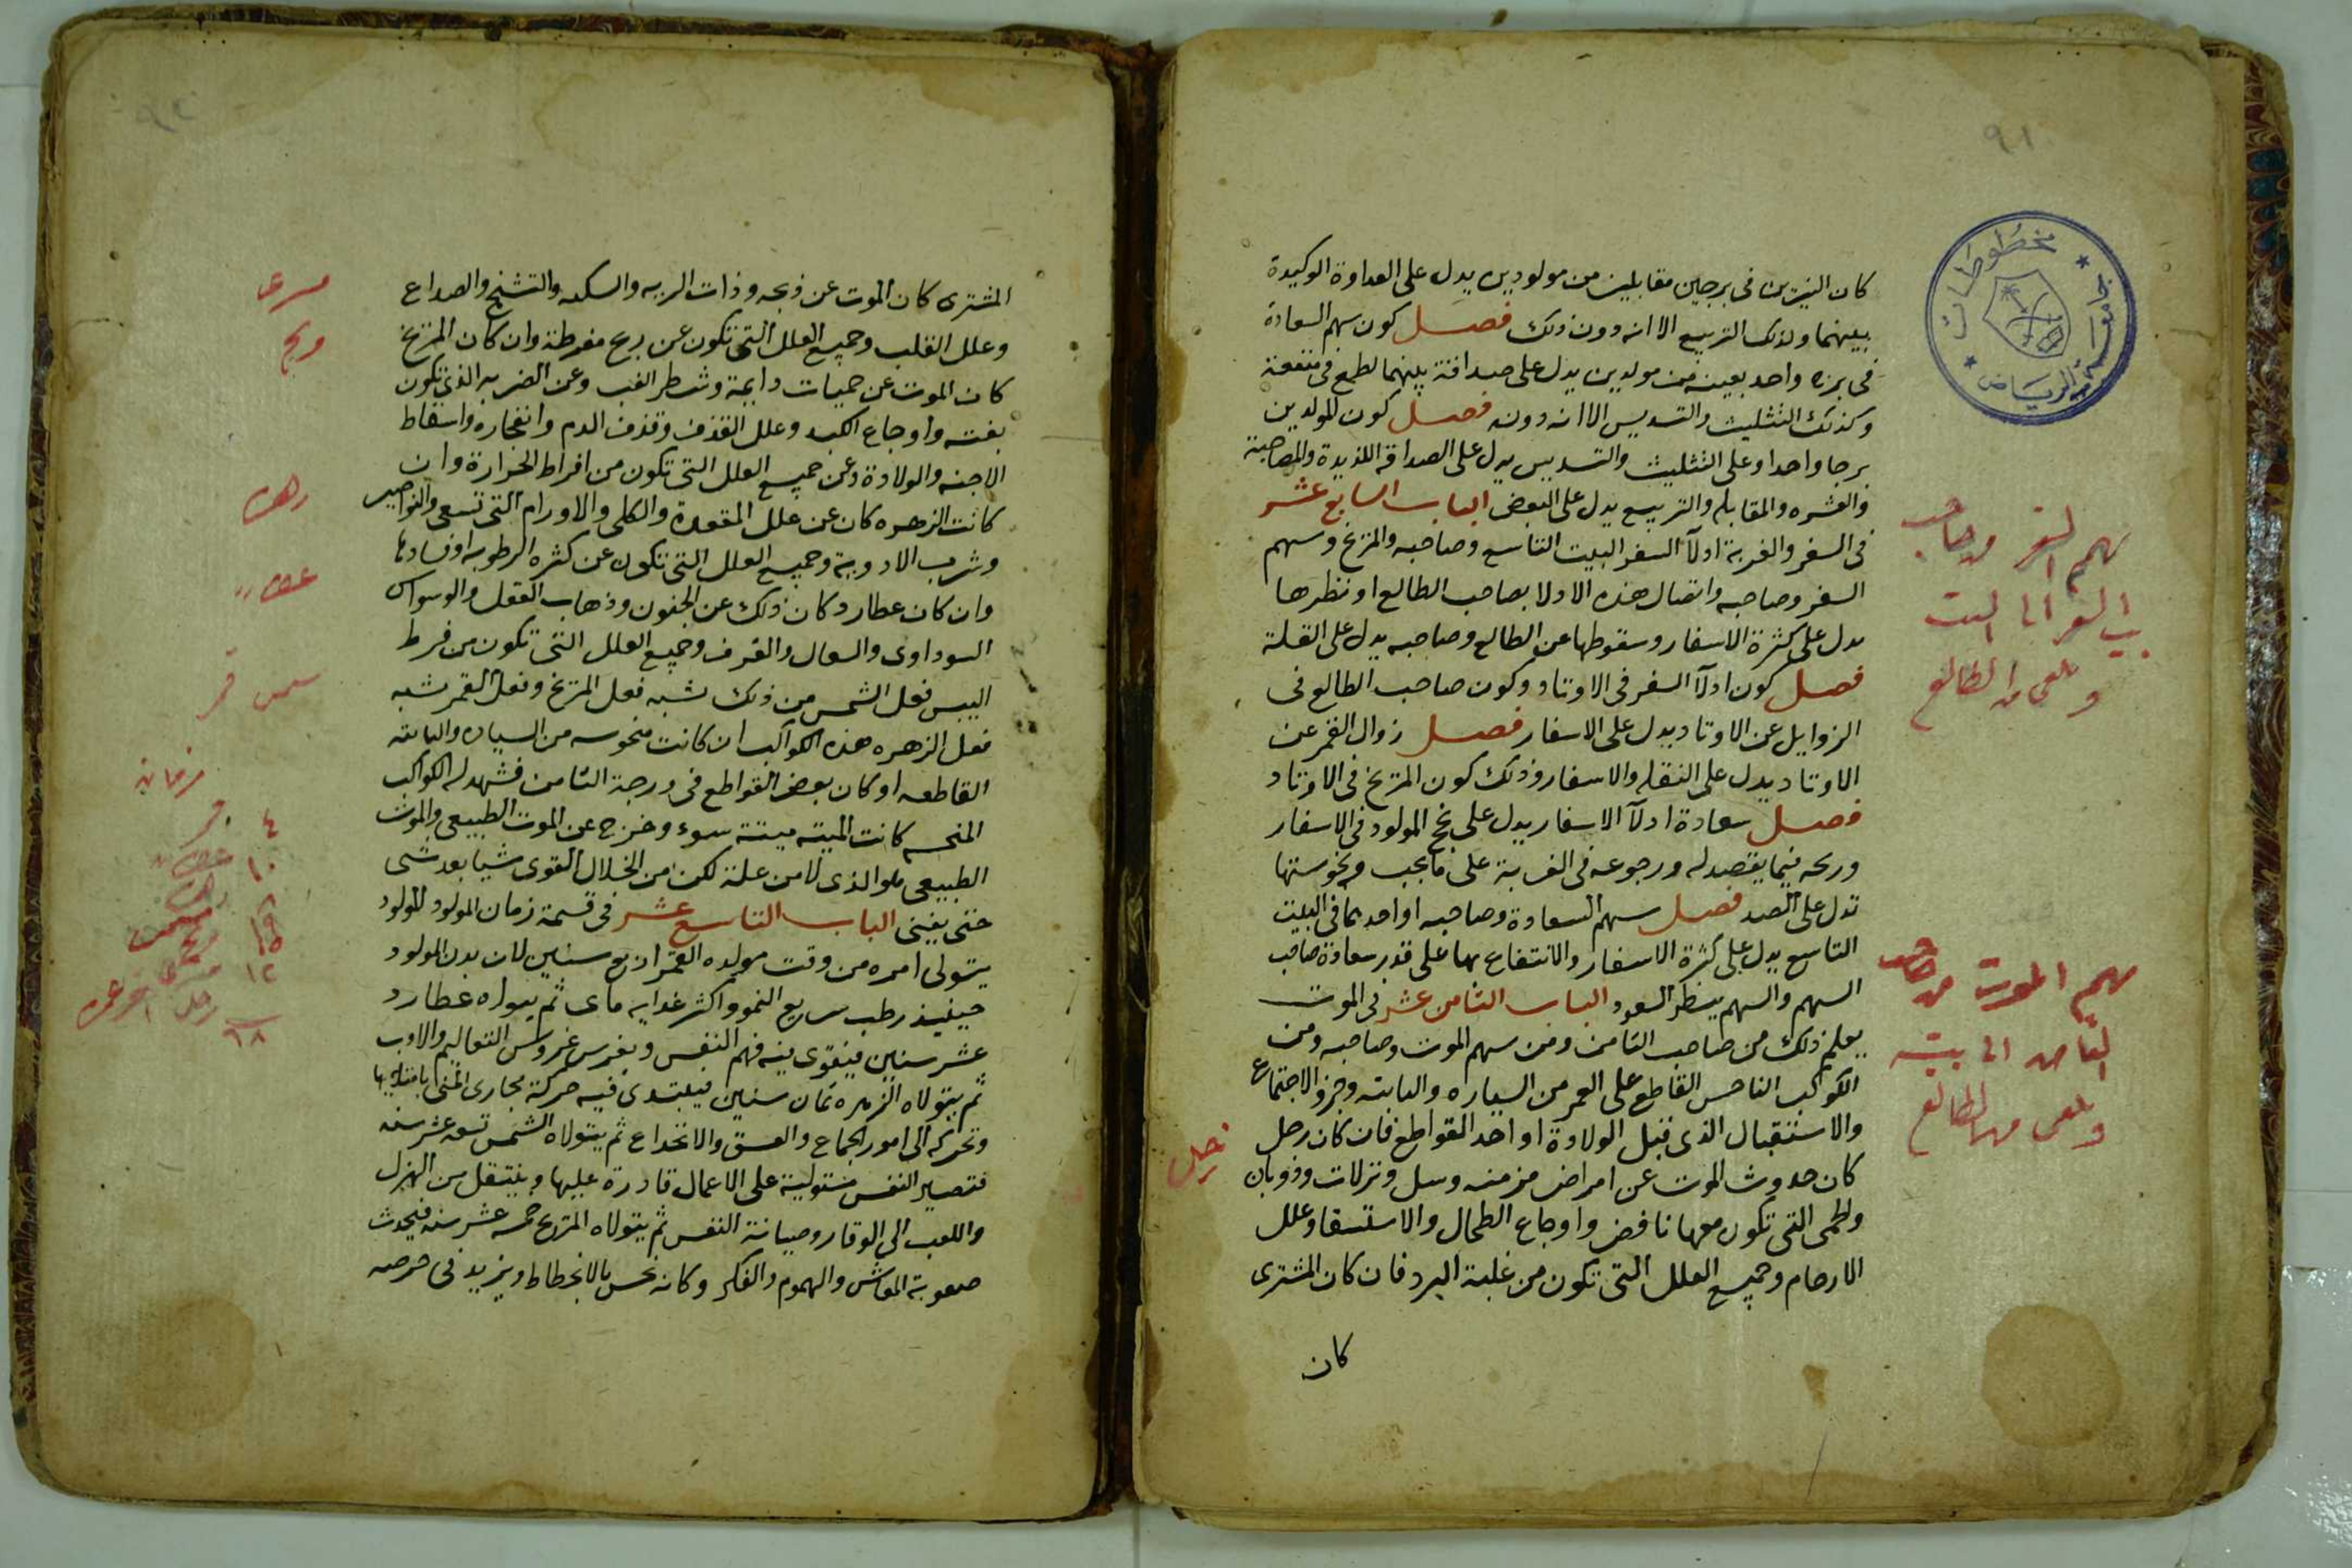 ٩١
مخطوطات
جامعة الرياض
كان النيرين فى برجين مقابلين من مولودين يدل على العداوة الوكيدة
بينهما ولذلك التربيع الا انه دون ذلك فصل كون سهم السعادة
فى برج واحد بعينه من مولدين يدل على صداقة بينهما لطمع فى منفعة
وكذلك التثليث والتسديس الا انه دونه فصل كون المولدين
برجا واحدا وعلى التثليث والتسديس يدل على الصداقة اللذيذة والمصاحبة
والعشره والمقابله والتربيع يدل على البغض الباب السابع عشر
فى السفر والغربة ادلآ السفر البيت التاسع وصاحبه والمريخ وسهم
السفر وصاحبه واتصال هذه الادلا بصاحب الطالع او نظرها
يدل على كثرة الاسفار وسقوطها عن الطالع وصاحبه يدل على القلة
فصل كون ادلآ السفر فى الاوتاد وكون صاحب الطالع فى
الزوايل عن الاوتاد يدل على الاسفار فصل زوال القمر عن
الاوتاد يدل على النقله والاسفار وذلك كون المريخ فى الاوتاد
فصل سعادة ادلآ الاسفار يدل على نجح المولود فى الاسفار
وربحه فيما يقصد له ورجوعه فى الغربة على ما يحب ونحوستها
تدل على الضد فصل سهم السعادة وصاحبه او احدهما فى البيت
التاسع يدل على كثرة الاسفار والانتفاع بها على قدر سعادة صاحب
السهم والسهم ينظر السعود الباب الثامن عشر فى الموت
يعلم ذلك من صاحب الثامن ومن سهم الموت وصاحبه ومن
الكواكب الناحس القاطع على العمر من السياره والثابته وجزو الاجتماع
والاستقبال الذى قبل الولادة او احد القواطع فان كان زحل
كان حدوث الموت عن امراض مزمنه وسل ونزلات وذوبان
والحمى التى تكون معها نافض واوجاع الطحال والاستسقا وعلل
الارحام وجميع العلل التى تكون من غلبة البرد فان كان المشترى
كان
سهم السفر وصاحب
بيت السفر الى البيت
ويلقى من الطالع
سهم الموت من صاحب
الثامن الى بيته
ويلقى من الطالع
زحل
المشترى كان الموت عن ذبحه وذات الريه والسكته والتشنج والصداع
وعلل القلب وجميع العلل التى تكون عن ريح مفرطة وان كان المريخ
كان الموت عن حميات دايمة وشطر الغب وعن الضربه الذى تكون
بغته واوجاع الكبد وعلل القذف وقذف الدم وانفجاره واسقاط
الاجنه والولادة وعن جميع العلل التى تكون من افراط الحرارة وان
كانت الزهره كان عن علل المقعدة والكلى والاورام التى تسعى والنواصير
وشرب الادوية وجميع العلل التى تكون عن كثره الرطوبه او فسادها
وان كان عطارد كان ذلك عن الجنون وذهاب العقل والوسواس
السوداوى والسعال والقرف وجميع العلل التى تكون من فرط
اليبس فعل الشمس من ذلك شبه فعل المريخ وفعل القمر شبه
فعل الزهره هذه الكواكب ان كانت منحوسه من السياره والثابته
القاطعه او كان بعض القواطع فى درجة الثامن فشهد له الكواكب
المنحسه كانت الميته ميتة سوء وخرج عن الموت الطبيعى والموت
الطبيعى هو الذى لا من علة لكن من انحلال القوى شيا بعد شى
حتى يفنى الباب التاسع عشر فى قسمة زمان المولود للمولود
يتولى امره من وقت مولده القمر اربع سنين لان بدن المولود
حينيذ رطب سريع النمو واكثر غدايه ماى ثم يتولاه عطارد
عشر سنين فيتقوى فيه فهم النفس ويغرس غروس التعاليم والادب
ثم يتولاه الزهره ثمان سنين فيبتدى فيه حركة مجارى المنى بامتلايها
وتحركه الى امور الجماع والعشق والانخداع ثم يتولاه الشمس تسعة عشر سنه
فتصير النفس متولية على الاعمال قادرة عليها وينتقل من الهزل
واللعب الى الوقار وصيانة النفس ثم يتولاه المريخ خمسه عشر سنه فيحدث
صعوبة المعاش والهموم والفكر وكانه يحس بالانحطاط ويزيد فى حرصه
مريخ
زهره
شمس قمر
٤
١٠
١٥
١٢